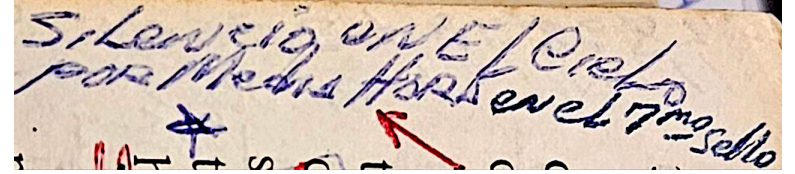 Silencio en El Cielo
por Media Hora en el 7mo Sello